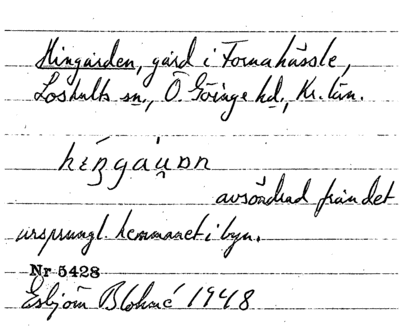 Hingården, gård i Fornahässle,
Loshults sn., Ö. Göinge hd., Kr. län.
avsöndrad från det
ursprungl. hemmanet i byn.
Nr 5428
Esbjörn Blohmé 1948